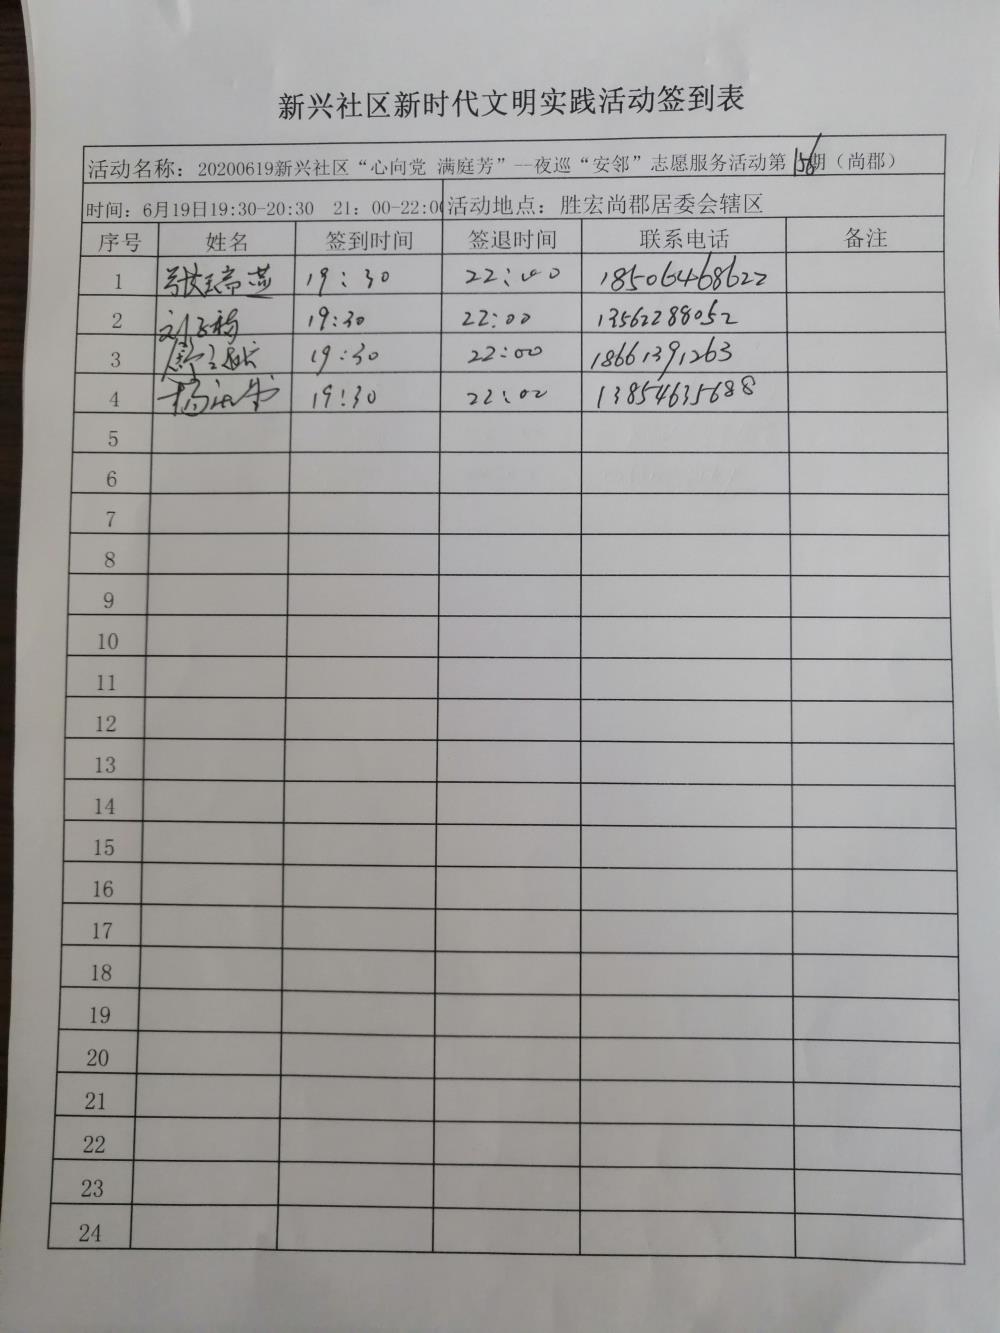 新兴社区新时代文明实践活动签到表
活动名称：20200619新兴社区“心向党 满庭芳”--夜巡“安邻”志愿服务活动第156期（尚郡）
时间：6月19日19:30-20:30 21：00-22:00 活动地点：胜宏尚郡居委会辖区
序号 姓名 签到时间 签退时间 联系电话 备注
1 19:30 22:00 18506468622
2 19:30 22:00 13562288052
3 19:30 22:00 18661391263
4 19:30 22:00 13854635688
5
6
7
8
9
10
11
12
13
14
15
16
17
18
19
20
21
22
23
24